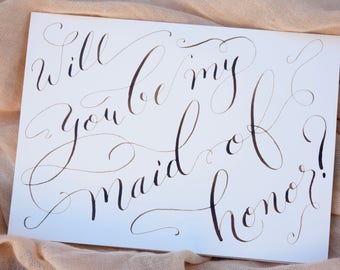 Will
you be my
maid of
honor?